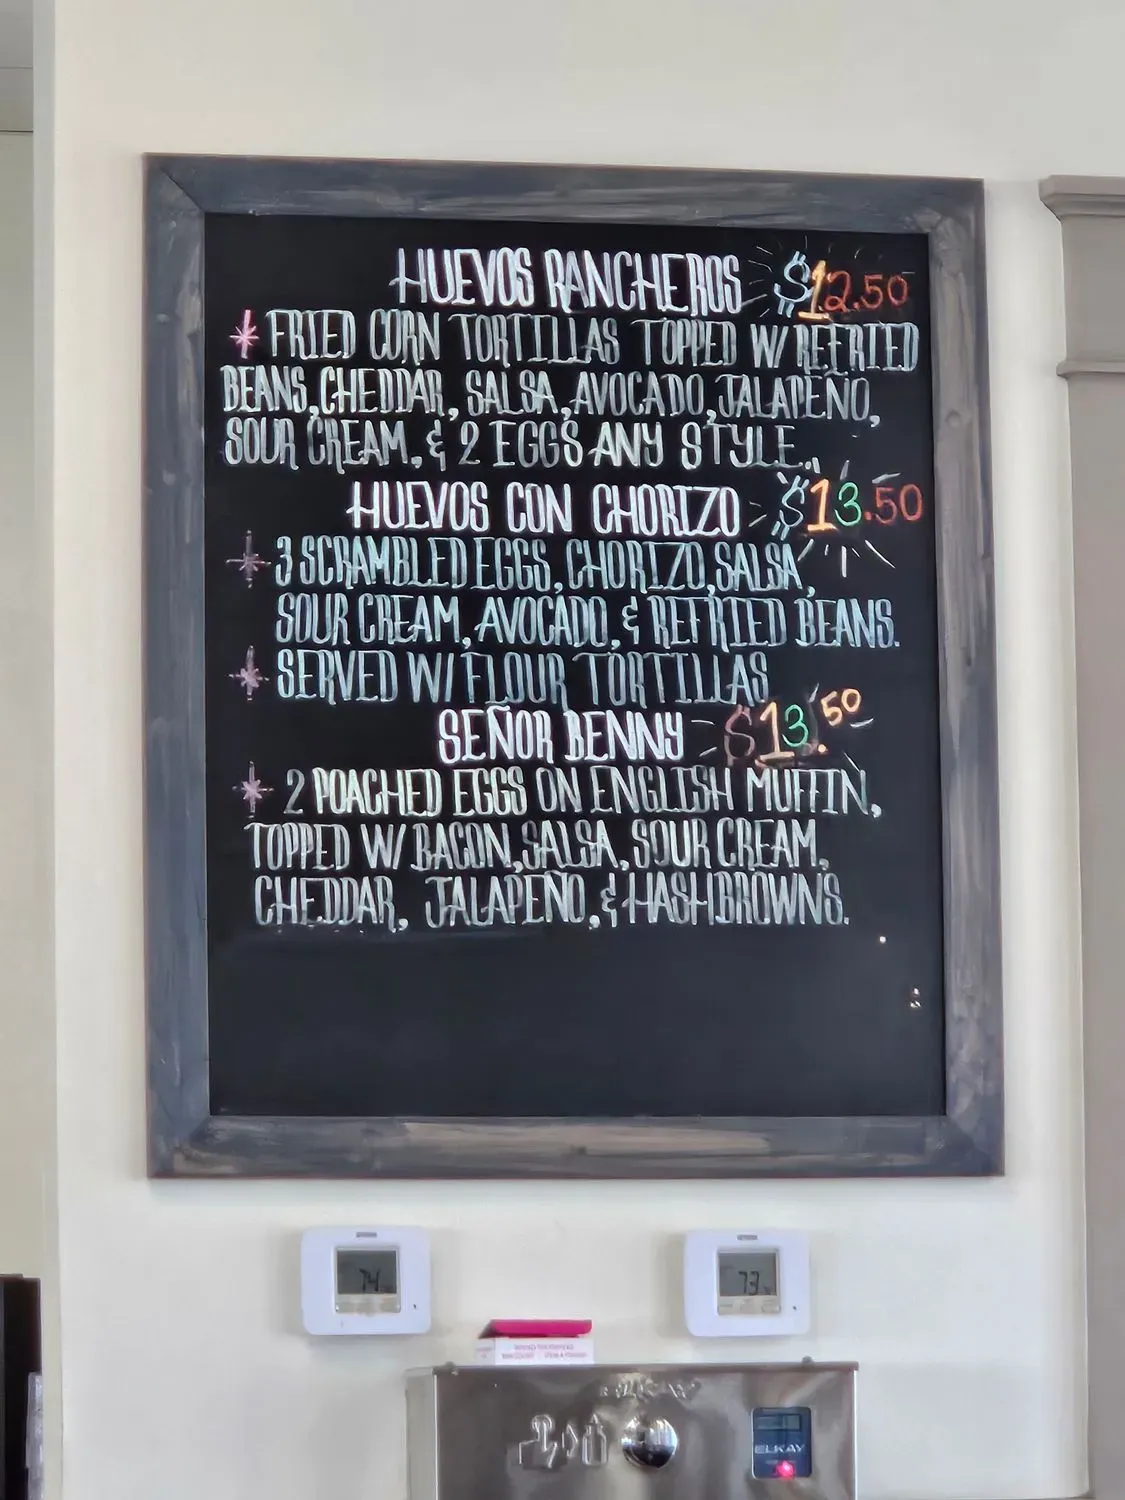 HUEVOS RANCHEROS $12.50
FRIED CORN TORTILLAS TOPPED W/ REFRIED
BEANS, CHEDDAR, SALSA, AVOCADO, JALAPEÑO,
SOUR CREAM, & 2 EGGS ANY STYLE..
HUEVOS CON CHORIZO $13.50
3 SCRAMBLED EGGS, CHORIZO, SALSA,
SOUR CREAM, AVOCADO, & REFRIED BEANS.
SERVED W/ FLOUR TORTILLAS
SEÑOR BENNY $13.50
2 POACHED EGGS ON ENGLISH MUFFIN,
TOPPED W/ BACON, SALSA, SOUR CREAM,
CHEDDAR, JALAPEÑO, & HASHBROWNS.
74
73
ELKAY
ELKAY